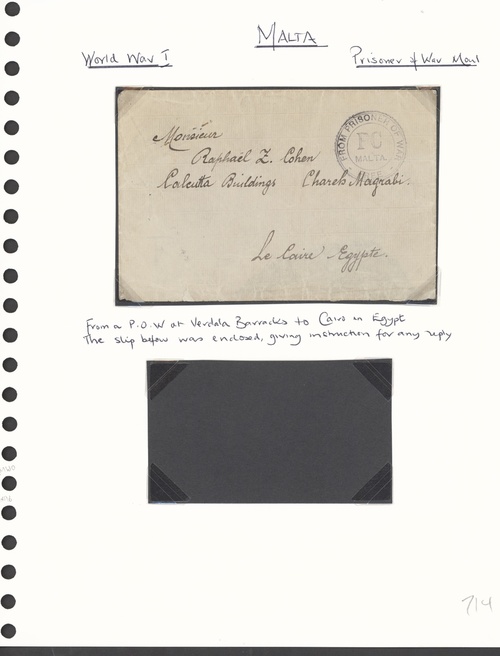 MALTA
World War I
Prisoner of War Mail
FROM PRISONER OF WAR
PO
MALTA
Monsieur
Raphaël Z. Cohen
Calcutta Buildings Chareh Magrabi.
Le Caire Egypte.
From a P.O.W at Verdala Barracks to Cairo in Egypt
The slip below was enclosed, giving instruction for any reply